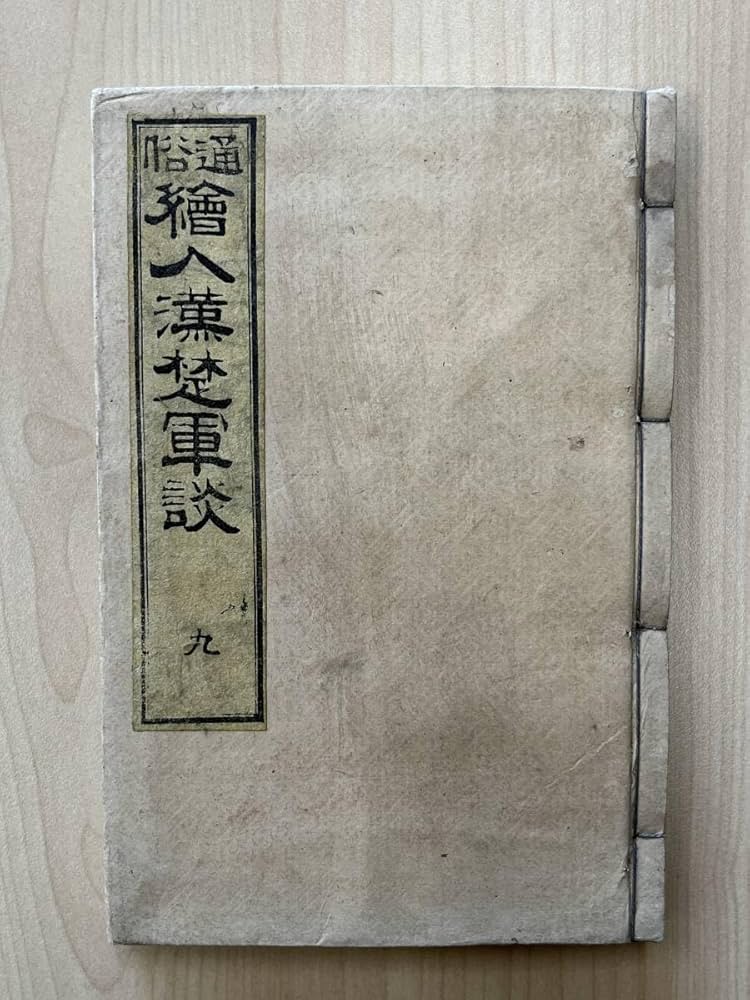 通俗
繪入漢楚軍談
九